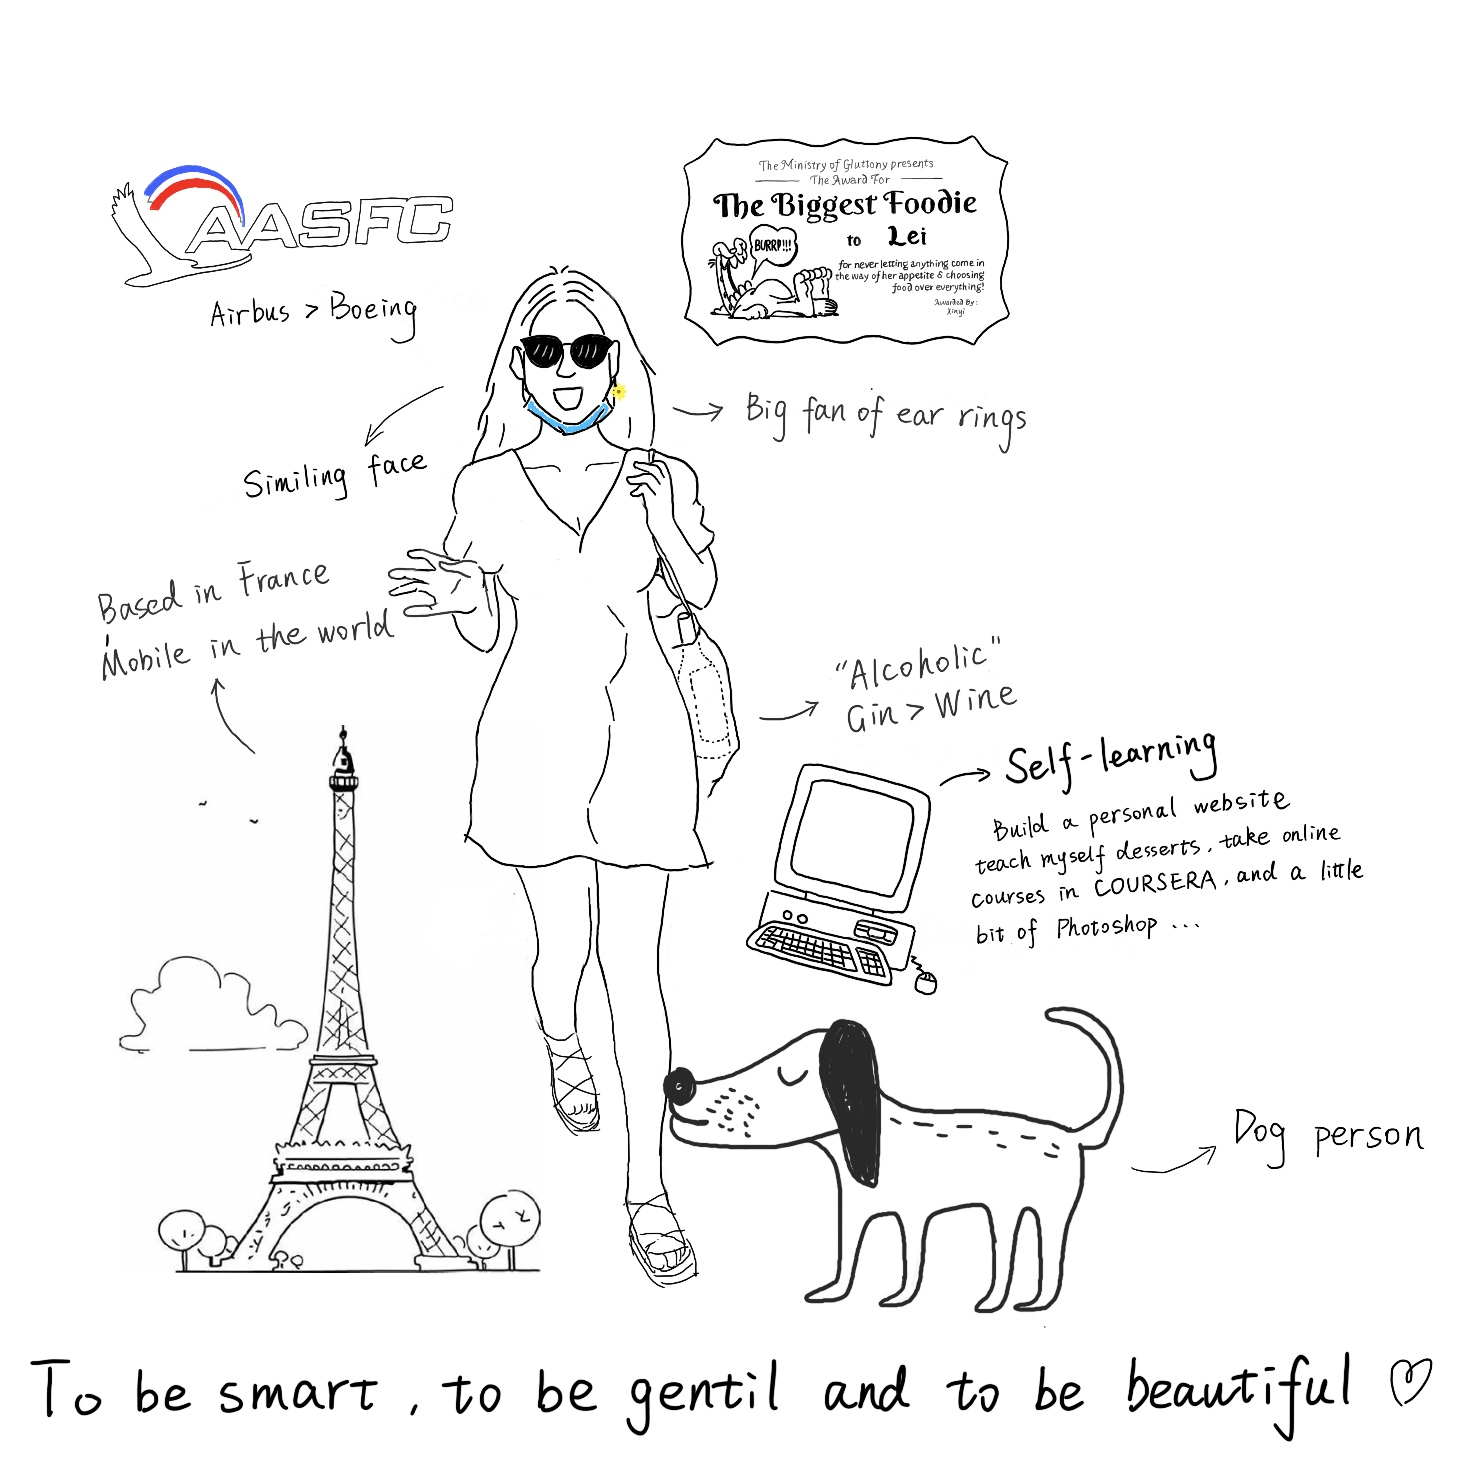 AASFC
Airbus > Boeing
The Ministry of Gluttony presents
The Award For
The Biggest Foodie
to Lei
BURRP!!!
for never letting anything come in
the way of her appetite & choosing
food over everything!
Awarded By:
Xinyi
Big fan of ear rings
Similing face
Based in France
Mobile in the world
"Alcoholic"
Gin > Wine
Self-learning
Build a personal website
teach myself desserts, take online
courses in COURSERA, and a little
bit of Photoshop ...
Dog person
To be smart, to be gentil and to be beautiful ♡